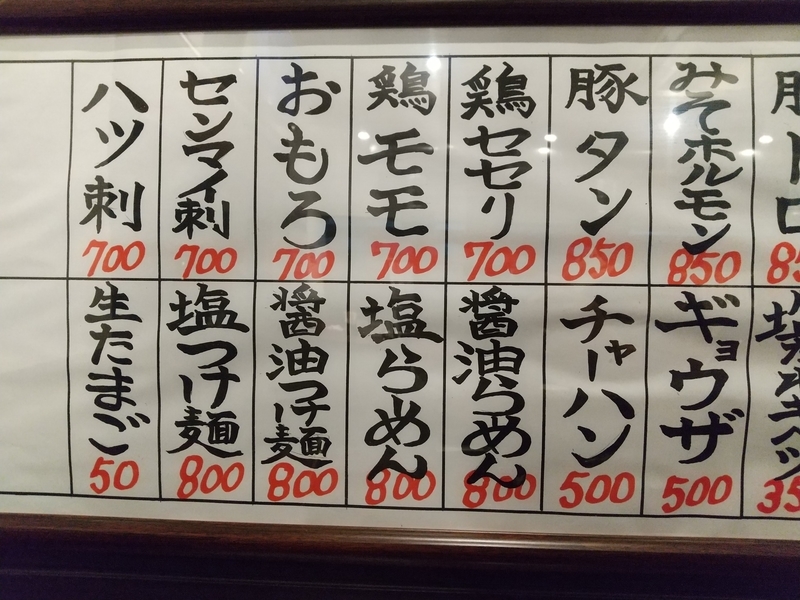 みそホルモン
850
豚タン
850
鶏セセリ
700
鶏モモ
700
おもろ
700
センマイ刺
700
ハツ刺
700
ギョウザ
500
チャーハン
500
醤油らめん
800
塩らめん
800
醤油つけ麺
800
塩つけ麺
800
生たまご
50